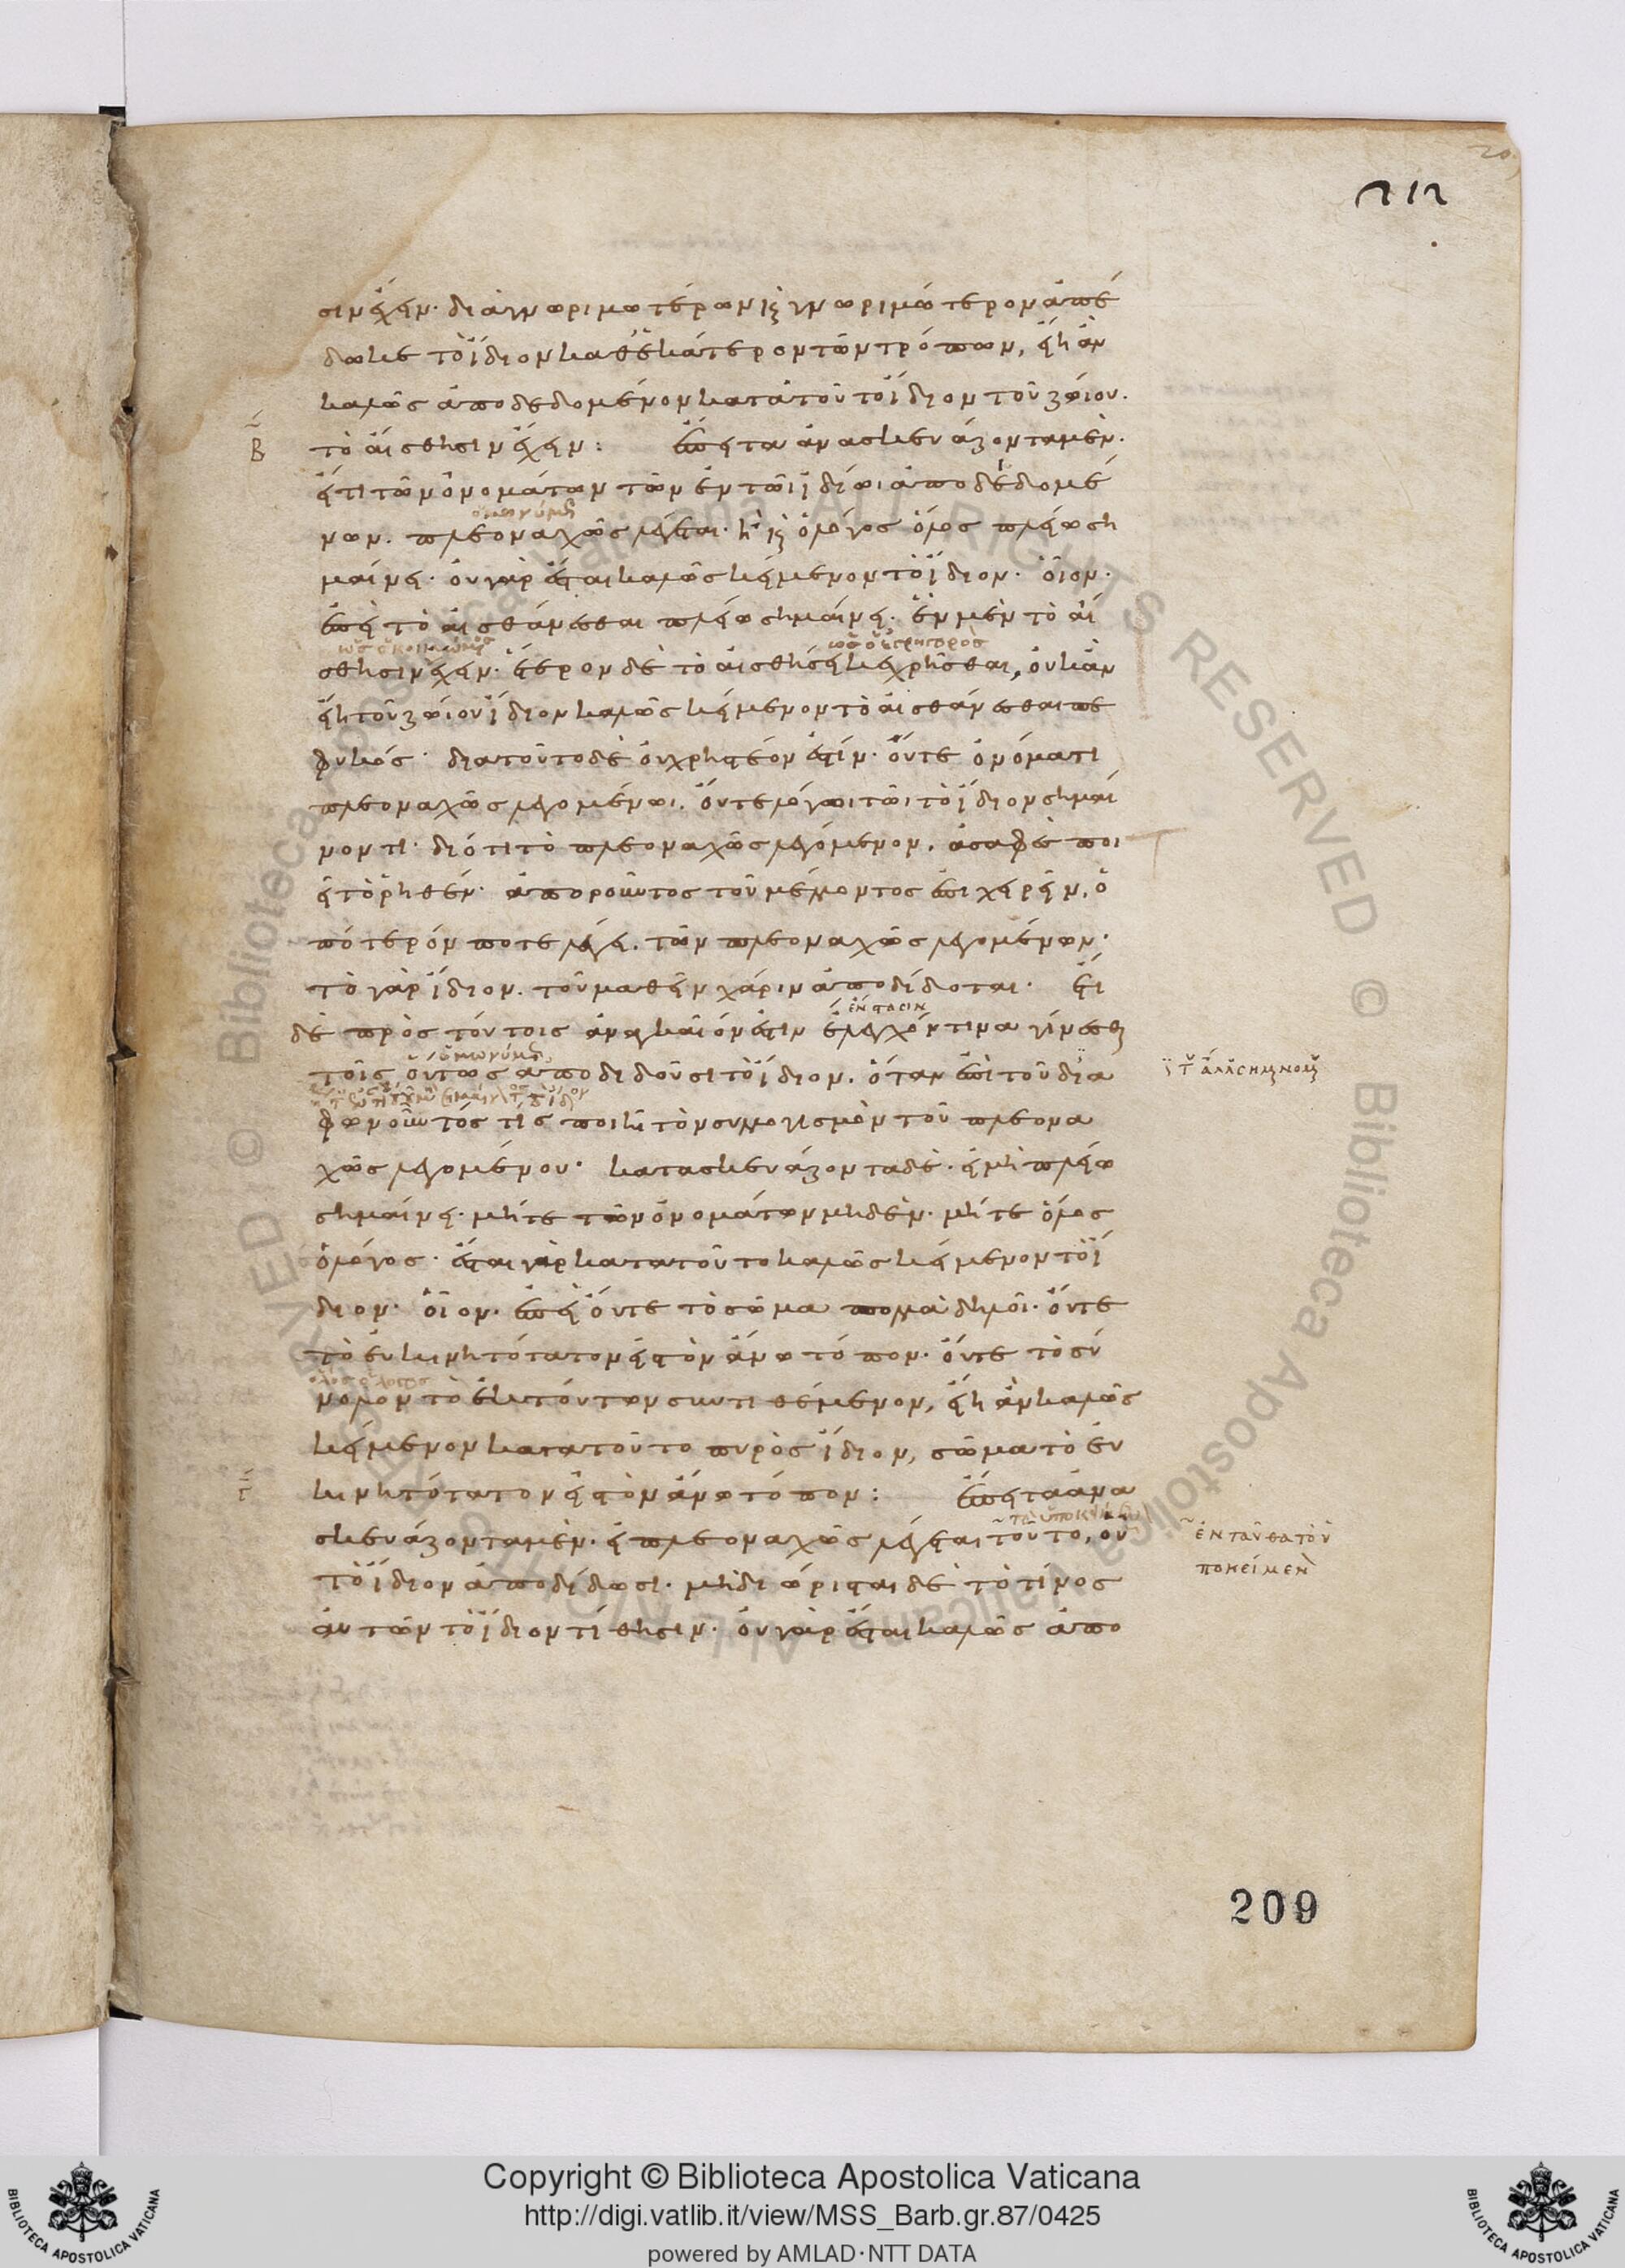 20
212
σιν ἔχειν· διὰ γνωριμωτέρων καὶ γνωριμώτερον ἀπέ
δωκε τὸ ἴδιον καθ' ἑκάτερον τῶν τρόπων, εἴη ἂν
καλῶς ἀποδεδομένον κατὰ τοῦτο ἴδιον τοῦ ζώιου.
Β
τὸ αἴσθησιν ἔχειν: ἔπειτα ἀνασκευάζοντα μέν.
εἴ τι τῶν ὀνομάτων τῶν ἐν τῶι ἰδίωι ἀποδεδομέ
ὁμωνύμως
νων. πλεοναχῶς λέγεται. ἢ καὶ ὁ λόγος ὅλος πλείω ση
μαίνει. οὐ γὰρ ἔσται καλῶς κείμενον τὸ ἴδιον. οἷον.
ἐπεὶ τὸ αἰσθάνεσθαι πλείω σημαίνει. ἓν μὲν τὸ αἴ
ὡς ὁ κοιμώμενος ὡς ὁ ἐγρηγορὸς
σθησιν ἔχειν. ἕτερον δὲ τὸ αἰσθήσει κεχρῆσθαι, οὐκ ἂν
εἴη τοῦ ζώιου ἴδιον καλῶς κείμενον τὸ αἰσθάνεσθαι πε
φυκός. διὰ τοῦτο δὲ οὐ χρηστέον ἐστίν. οὔτε ὀνόματι
πλεοναχῶς λεγομένωι. οὔτε λόγωι τῶι τὸ ἴδιον σημαί
νοντι. διότι τὸ πλεοναχῶς λεγόμενον. ἀσαφὲς ποι
εῖ τὸ ῥηθέν. ἀποροῦντος τοῦ μέλλοντος ἐπιχειρεῖν. ὁ
πότερόν ποτε λέγει. τῶν πλεοναχῶς λεγομένων.
τὸ γὰρ ἴδιον. τοῦ μαθεῖν χάριν ἀποδίδοται. ἔτι
ἔνστασιν
δὲ πρὸς τούτοις ἀναγκαῖόν ἐστιν ἔλεγχόν τινα γίνεσθαι
ὁμωνύμως
τοῖς οὕτως ἀποδιδοῦσι τὸ ἴδιον. ὅταν ἐπὶ τοῦ δια
φωνοῦντός τις ποιῆι τὸν συλλογισμὸν τοῦ πλεονα
χῶς λεγομένου. κατασκευάζοντα δέ. εἰ μὴ πλείω
σημαίνει. μήτε τῶν ὀνομάτων μηδέν. μήτε ὅλος
ὁ λόγος. ἔσται γὰρ κατὰ τοῦτο καλῶς κείμενον τὸ ἴ
διον. οἷον. ἐπεὶ οὔτε τὸ σῶμα πολλὰ δηλοῖ. οὔτε
τὸ εὐκινητότατον εἰς τὸν ἄνω τόπον. οὔτε τὸ σύ
νολον τὸ ἐκ τούτων συντιθέμενον, εἴη ἂν καλῶς
κείμενον κατὰ τοῦτο πυρὸς ἴδιον, σῶμα τὸ εὐ
Γ
κινητότατον εἰς τὸν ἄνω τόπον: ἔπειτα ἀνα
σκευάζοντα μέν. εἰ πλεοναχῶς λέγεται τοῦτο, οὗ
ἐνταῦθα τὸ ὑ
ποκείμενον
τὸ ἴδιον ἀποδίδωσι. μὴ διώρισται δὲ τὸ τίνος
αὐτῶν τὸ ἴδιον τίθησιν. οὐ γὰρ ἔσται καλῶς ἀπο
209
© Biblioteca Apostolica Vaticana ALL RIGHTS RESERVED © Biblioteca Apostolica Vaticana ALL RIGHTS RESERVED
BIBLIOTECA APOSTOLICA VATICANA
Copyright © Biblioteca Apostolica Vaticana
http://digi.vatlib.it/view/MSS_Barb.gr.87/0425
powered by AMLAD·NTT DATA
BIBLIOTECA APOSTOLICA VATICANA